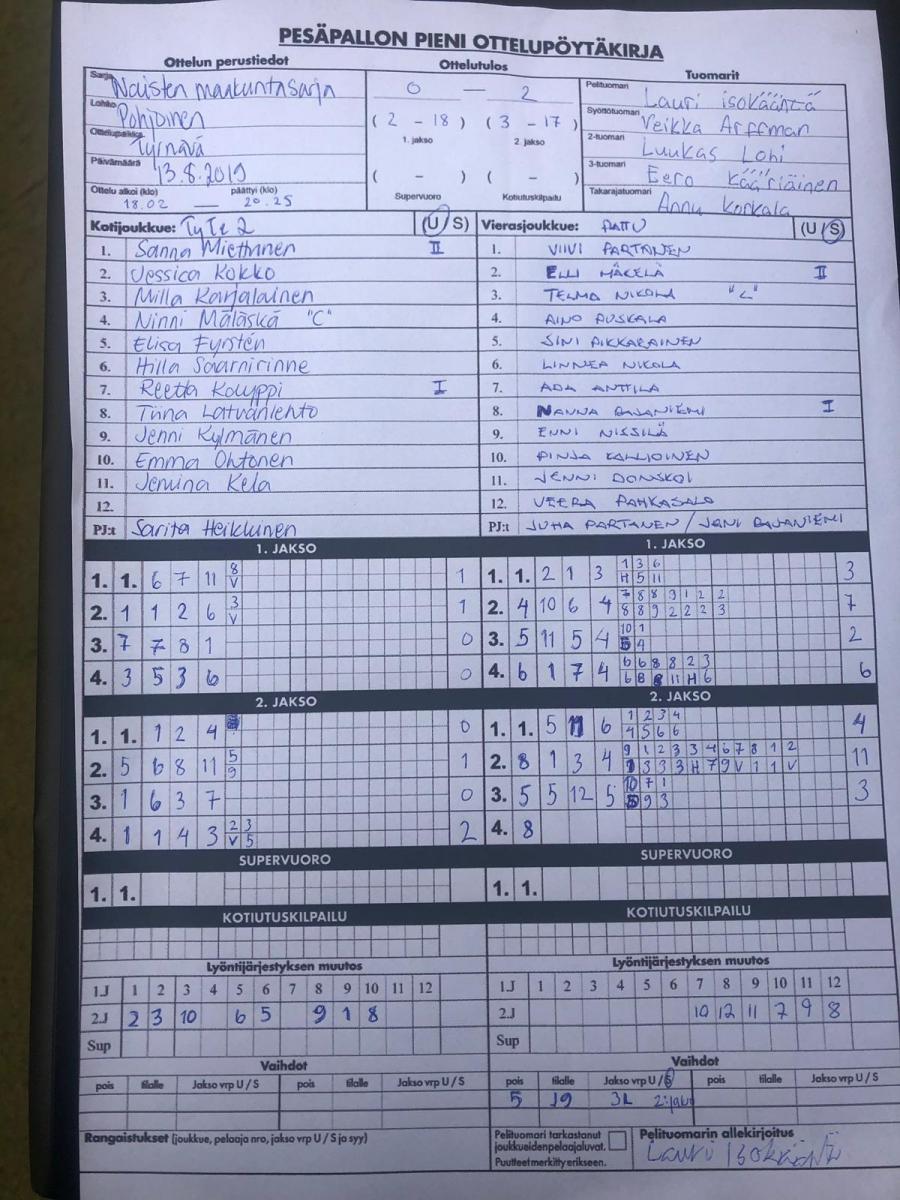 PESÄPALLON PIENI OTTELUPÖYTÄKIRJA
Ottelun perustiedot Ottelutulos Tuomarit
Sarja Naisten maakuntasarja 0 — 2 Pelituomari Lauri isokääntä
Lohko Pohjoinen ( 2 - 18 ) ( 3 - 17 ) Syöttötuomari Veikka Arffman
Ottelupaikka Tyrnävä 1. jakso 2. jakso 2-tuomari Luukas Lohi
Päivämäärä 13.8.2019 ( - ) ( - ) 3-tuomari Eero Kääriäinen
Ottelu alkoi (klo) päättyi (klo) Supervuoro Kotiutuskilpailu Takarajatuomari Annu Korkala
18.02 — 20.25
Kotijoukkue: TyTe 2 (U/S) Vierasjoukkue: PATTU (U/S)
1. Sanna Miettunen II 1. VIIVI PARTANEN
2. Jessica Kokko 2. ELLI MÄKELÄ II
3. Milla Karjalainen 3. TELMA NIKOLA "C"
4. Ninni Mäläskä "C" 4. AINO PUSKALA
5. Elisa Fyrstén 5. SINI PIKKARAINEN
6. Hilla Saarnirinne 6. LINNEA NIKOLA
7. Reetta Kauppi I 7. ADA ANTTILA
8. Tiina Latvanlehto 8. NANNA RAJANIEMI I
9. Jenni Kylmänen 9. ENNI NISSILÄ
10. Emma Ohtonen 10. PINJA KALLIOINEN
11. Jemina Kela 11. JENNI DONSKOI
12. 12. VEERA PAHKASALO
PJ:t Sarita Heikkinen PJ:t JUHA PARTANEN / JANI RAJANIEMI
1. JAKSO 1. JAKSO
1. 1. 6 7 11 8 1 1. 1. 2 1 3 1 3 6 3
V H 5 11
2. 1 1 2 6 3 1 2. 4 10 6 4 7 8 8 9 1 2 2 7
V 8 8 9 2 2 2 3
3. 7 7 8 1 0 3. 5 11 5 4 10 1 2
5 4
4. 3 5 3 6 0 4. 6 1 7 4 6 6 8 8 2 3 6
6 8 8 11 H 6
2. JAKSO 2. JAKSO
1. 1. 1 2 4 0 1. 1. 5 11 6 1 2 3 4 4
4 5 6 6
2. 5 6 8 11 5 1 2. 8 1 3 4 9 1 2 3 3 4 6 7 8 1 2 11
9 1 3 3 3 H 7 9 V 1 1 V
3. 1 6 3 7 0 3. 5 5 12 5 10 7 1 3
5 9 3
4. 1 1 4 3 2 3 2 4. 8
V 5
SUPERVUORO SUPERVUORO
1. 1. 1. 1.
KOTIUTUSKILPAILU KOTIUTUSKILPAILU
Lyöntijärjestyksen muutos Lyöntijärjestyksen muutos
1.J 1 2 3 4 5 6 7 8 9 10 11 12 1.J 1 2 3 4 5 6 7 8 9 10 11 12
2.J 2 3 10 6 5 9 1 8 2.J 10 12 11 7 9 8
Sup Sup
Vaihdot Vaihdot
pois tilalle Jakso vrp U / S pois tilalle Jakso vrp U / S pois tilalle Jakso vrp U / S pois tilalle Jakso vrp U / S
5 19 3L 2.jakso
Rangaistukset (joukkue, pelaaja nro, jakso vrp U / S ja syy) Pelituomari tarkastanut joukkueidenpelaajaluvat. Pelituomarin allekirjoitus
Puutteet merkitty erikseen. Lauri Isokääntä